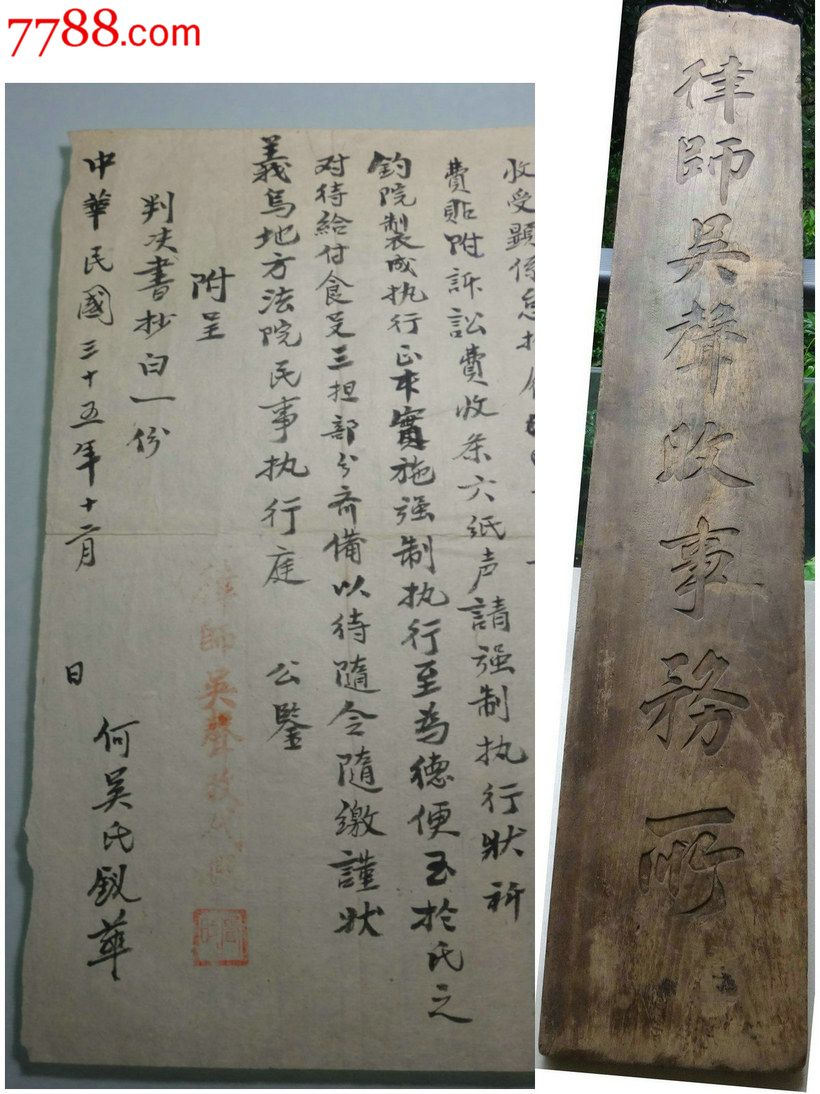 7788.com
收受顯係怠
費貼附訴訟費收条六纸声請强制执行狀祈
鈞院製成执行正本實施强制执行至為德便至於氏之
对待給付食旻三担部分斎備以待隨令隨繳謹狀
義烏地方法院民事执行庭 公鑒
附呈
判决書抄白一份
中華民國三十五年十二月 日
何吴氏釵華
律師吴聲
律師吴聲㕝事務所